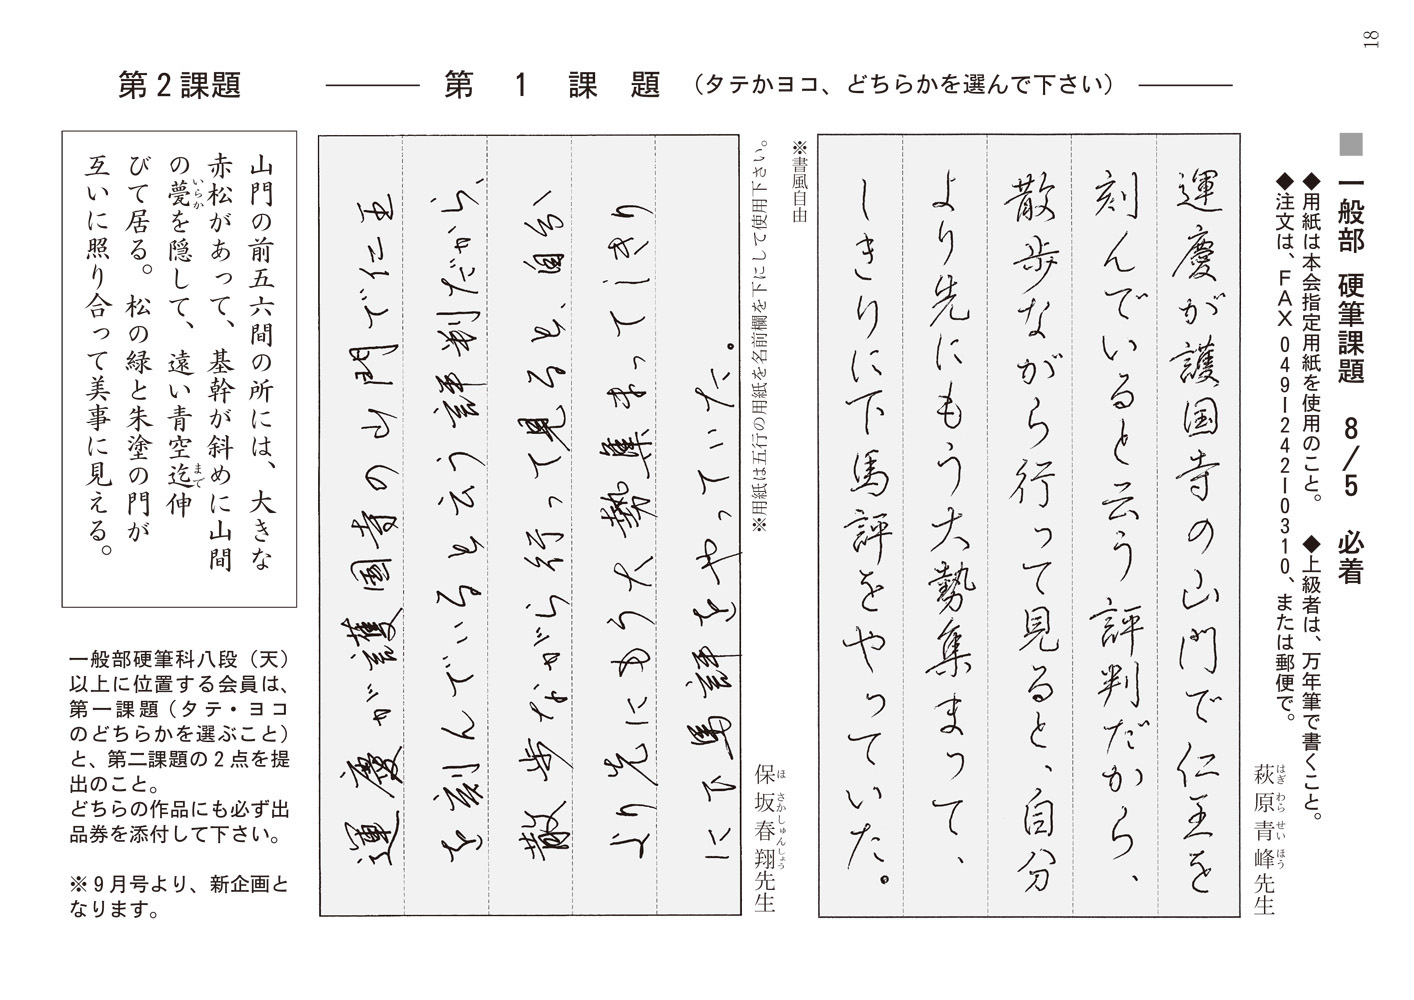 18
■ 一般部 硬筆課題 8/5 必着
◆用紙は本会指定用紙を使用のこと。 ◆上級者は、万年筆で書くこと。
◆注文は、ＦＡＸ０４９ー２４２ー０３１０、または郵便で。
第 1 課 題 （タテかヨコ、どちらかを選んで下さい）
萩原青峰先生
はぎ わら せい ほう
運慶が護国寺の山門で仁王を
刻んでいると云う評判だから、
散歩ながら行って見ると、自分
より先にもう大勢集まって、
しきりに下馬評をやっていた。
※書風自由
※用紙は五行の用紙を名前欄を下にして使用下さい。※
保坂春翔先生
ほ さかしゅんしょう
運慶が護国寺の山門で仁王
を刻んでいると云う評判だから、
散歩ながら行って見ると、自分
より先にもう大勢集まってしきり
に下馬評をやっていた。
第２課題
山門の前五六間の所には、大きな
赤松があって、基幹が斜めに山間
の甍を隠して、遠い青空迄伸
いらか
まで
びて居る。松の緑と朱塗の門が
互いに照り合って美事に見える。
一般部硬筆科八段（天）
以上に位置する会員は、
第一課題（タテ・ヨコ
のどちらかを選ぶこと）
と、第二課題の２点を提
出のこと。
どちらの作品にも必ず出
品券を添付して下さい。
※９月号より、新企画と
なります。